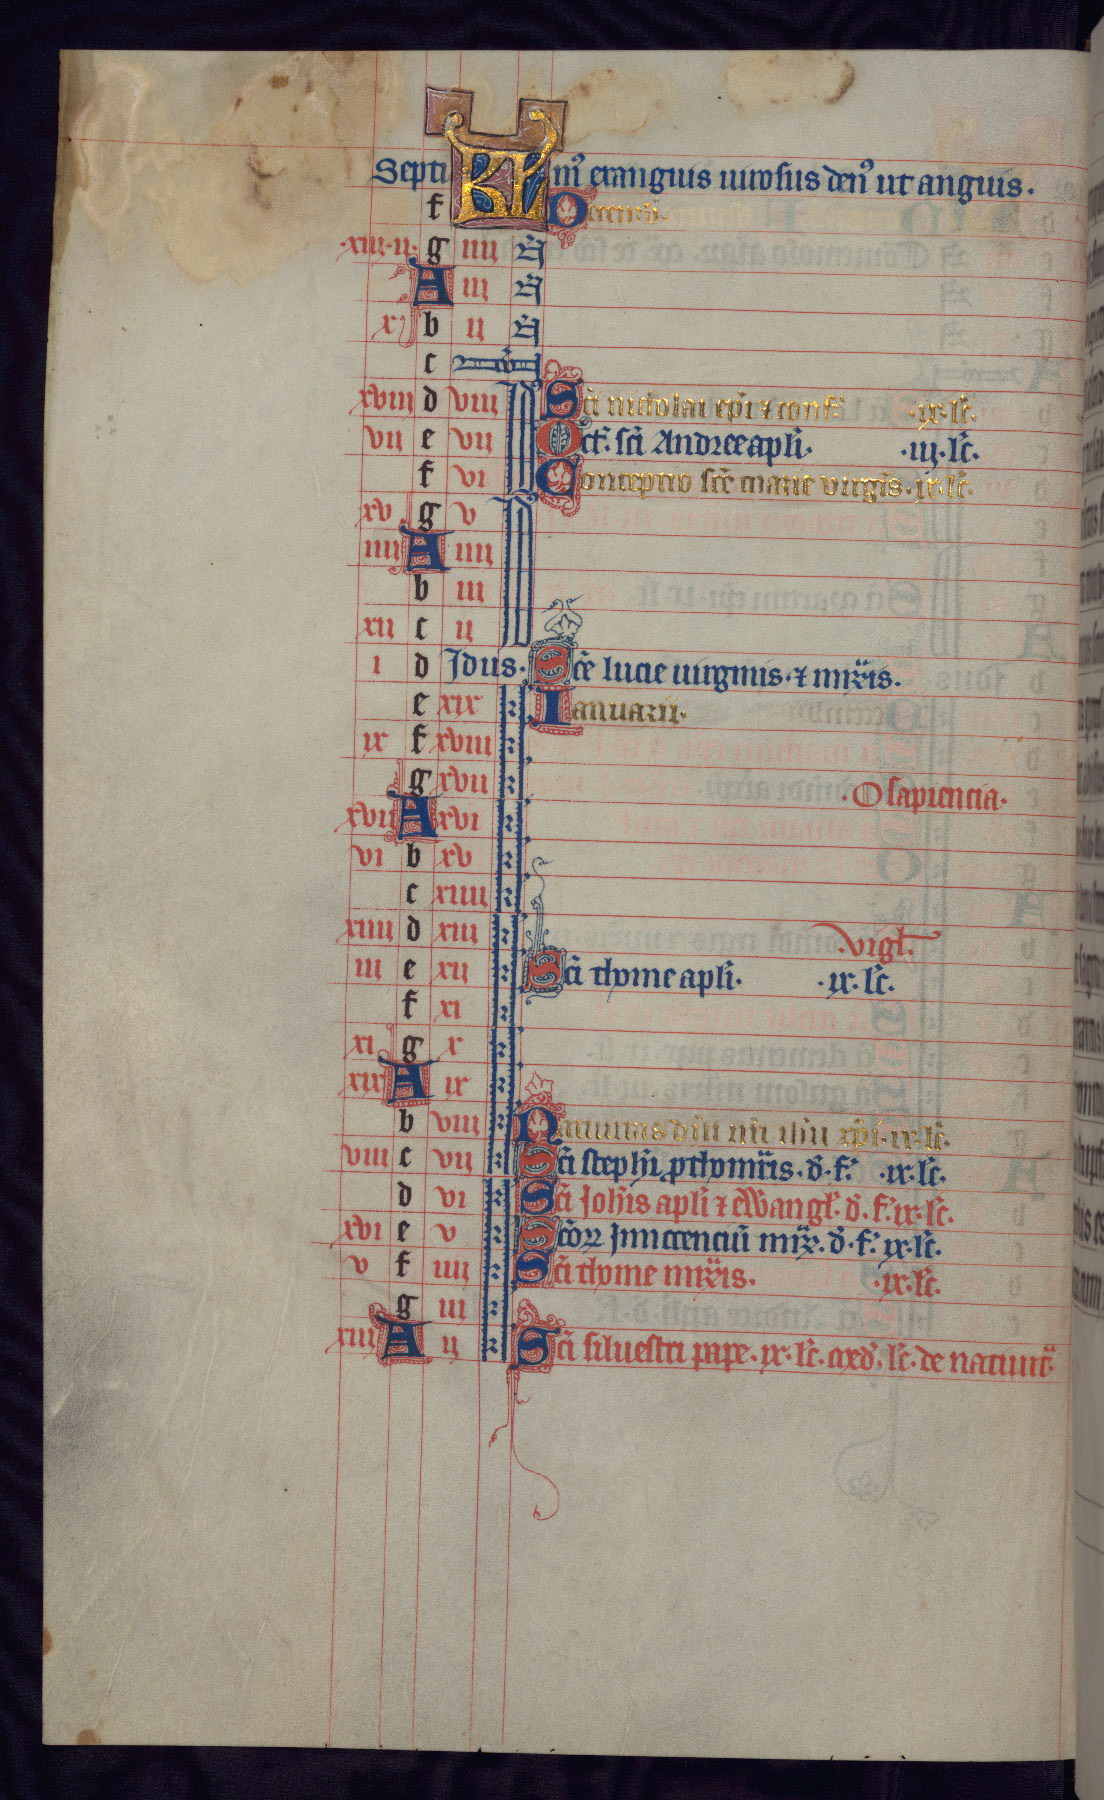 Septi KL mꝰ exanguis uirosus denꝰ ut anguis.
f Decembr̃.
xiii ii g iiii N̄
A iii N̄
x b ii N̄
c Nõn
xviii d viii Sc̃i nicholai ep̃i ⁊ conf̃. ix. lc̃.
vii e vii Oct̃. sc̃i Andree apl̃i. iii. lc̃.
f vi Conceptio sc̃e marie virgĩs. ix. lc̃.
xv g v
iiii A iiii
b iii
xii c ii
i d Idus. Sc̃e lucie uirginis. ⁊ mr̃is.
e xix kl Ianuarii.
ix f xviii kl
g xvii kl O sapiencia.
xvii A xvi kl
vi b xv kl
c xiiii kl
xiiii d xiii kl Vigl̃.
iii e xii kl Sc̃i thome apl̃i. ix. lc̃.
f xi kl
xi g x kl
xix A ix kl
b viii kl Natiuitas dñi nr̃i ihũ xp̃i. ix. lc̃.
viii c vii kl Sc̃i steph̃i ꝓthom̃ris. d̃. f̃. ix. lc̃.
d vi kl Sc̃i Joh̃is apl̃i ⁊ ewangl̃. d̃. f̃. ix. lc̃.
xvi e v kl Sc̃oꝝ Innocenciũ mr̃ꝝ. d̃. f̃. ix. lc̃.
v f iiii kl Sc̃i thome mr̃is. ix. lc̃.
g iii kl
xiii A ii kl Sc̃i siluestri pape. ix. lc̃. lc̃. de natiuit̃